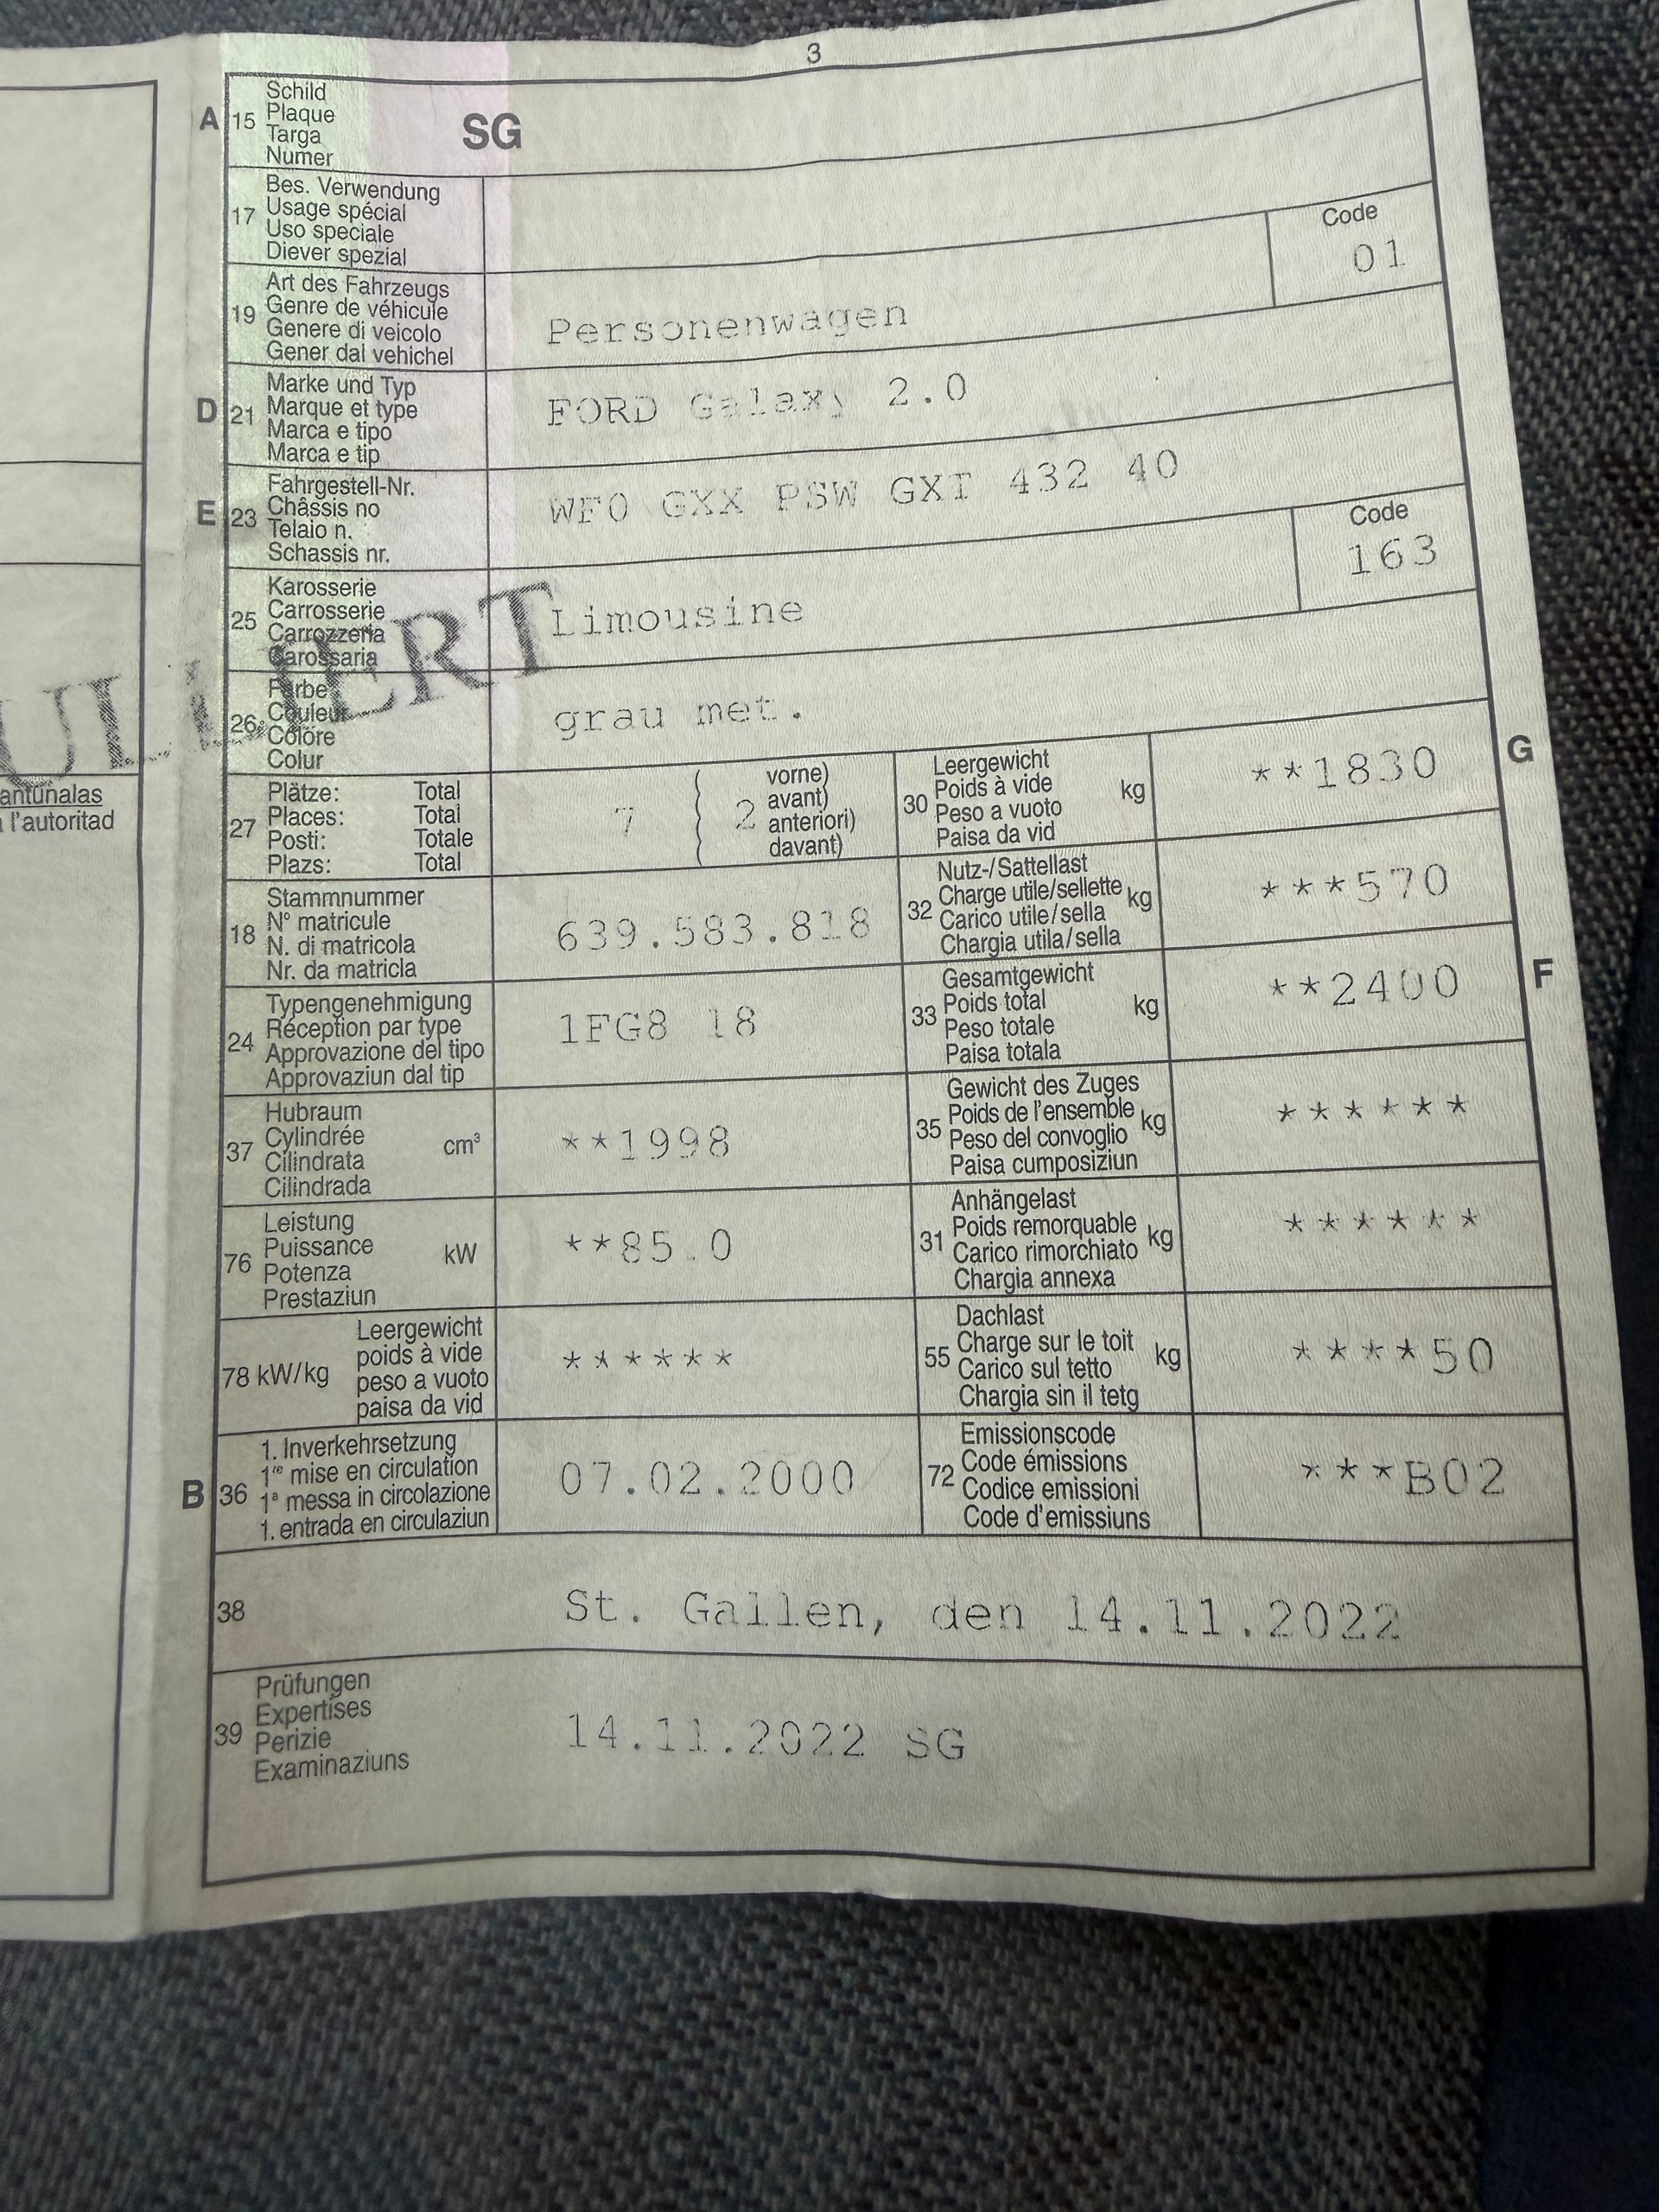 3
A 15 Schild
Plaque
Targa
Numer
SG
17 Bes. Verwendung
Usage spécial
Uso speciale
Diever spezial
19 Art des Fahrzeugs
Genre de véhicule
Genere di veicolo
Gener dal vehichel
Personenwagen
Code
01
D 21 Marke und Typ
Marque et type
Marca e tipo
Marca e tip
FORD Galaxy 2.0
E 23 Fahrgestell-Nr.
Châssis no
Telaio n.
Schassis nr.
WF0 GXX PSW GXT 432 40
25 Karosserie
Carrosserie
Carrozzeria
Carossaria
Limousine
Code
163
26 Farbe
Couleur
Colore
Colur
grau met.
ULLIERT
antunalas
l'autoritad
27 Plätze: Total
Places: Total
Posti: Totale
Plazs: Total
7 ( 2 vorne)
avant)
anteriori)
davant)
30 Leergewicht
Poids à vide kg
Peso a vuoto
Paisa da vid
**1830
G
18 Stammnummer
N° matricule
N. di matricola
Nr. da matricla
639.583.818
32 Nutz-/Sattellast
Charge utile/sellette kg
Carico utile/sella
Chargia utila/sella
***570
24 Typengenehmigung
Réception par type
Approvazione del tipo
Approvaziun dal tip
1FG8 18
33 Gesamtgewicht
Poids total kg
Peso totale
Paisa totala
**2400
F
37 Hubraum
Cylindrée cm³
Cilindrata
Cilindrada
**1998
35 Gewicht des Zuges
Poids de l'ensemble kg
Peso del convoglio
Paisa cumposiziun
******
76 Leistung
Puissance kW
Potenza
Prestaziun
**85.0
31 Anhängelast
Poids remorquable kg
Carico rimorchiato
Chargia annexa
******
78 kW/kg Leergewicht
poids à vide
peso a vuoto
paisa da vid
******
55 Dachlast
Charge sur le toit kg
Carico sul tetto
Chargia sin il tetg
****50
B 36 1. Inverkehrsetzung
1re mise en circulation
1a messa in circolazione
1. entrada en circulaziun
07.02.2000
72 Emissionscode
Code émissions
Codice emissioni
Code d'emissiuns
***B02
38 St. Gallen, den 14.11.2022
39 Prüfungen
Expertises
Perizie
Examinaziuns
14.11.2022 SG